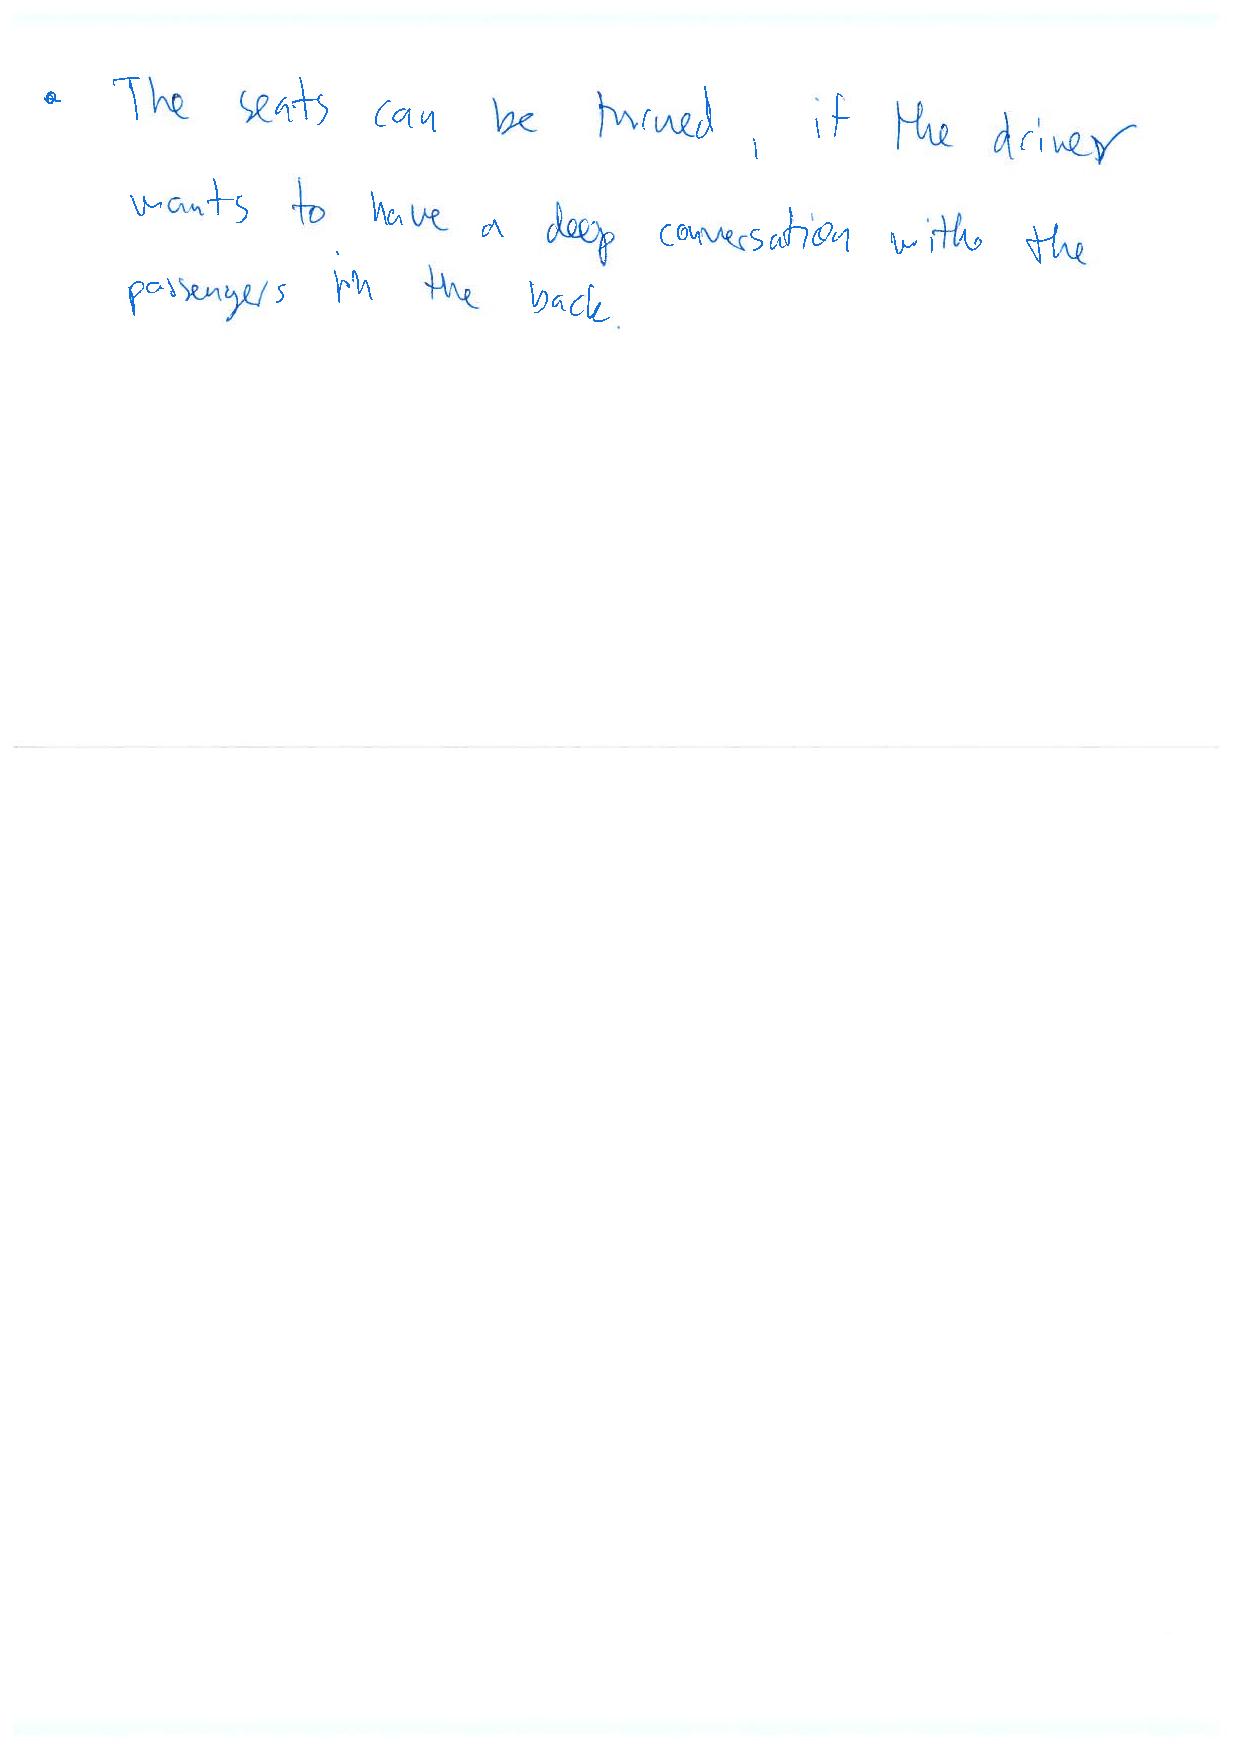 • The seats can be turned, if the driver
wants to have a deep conversation with the
passengers in the back.